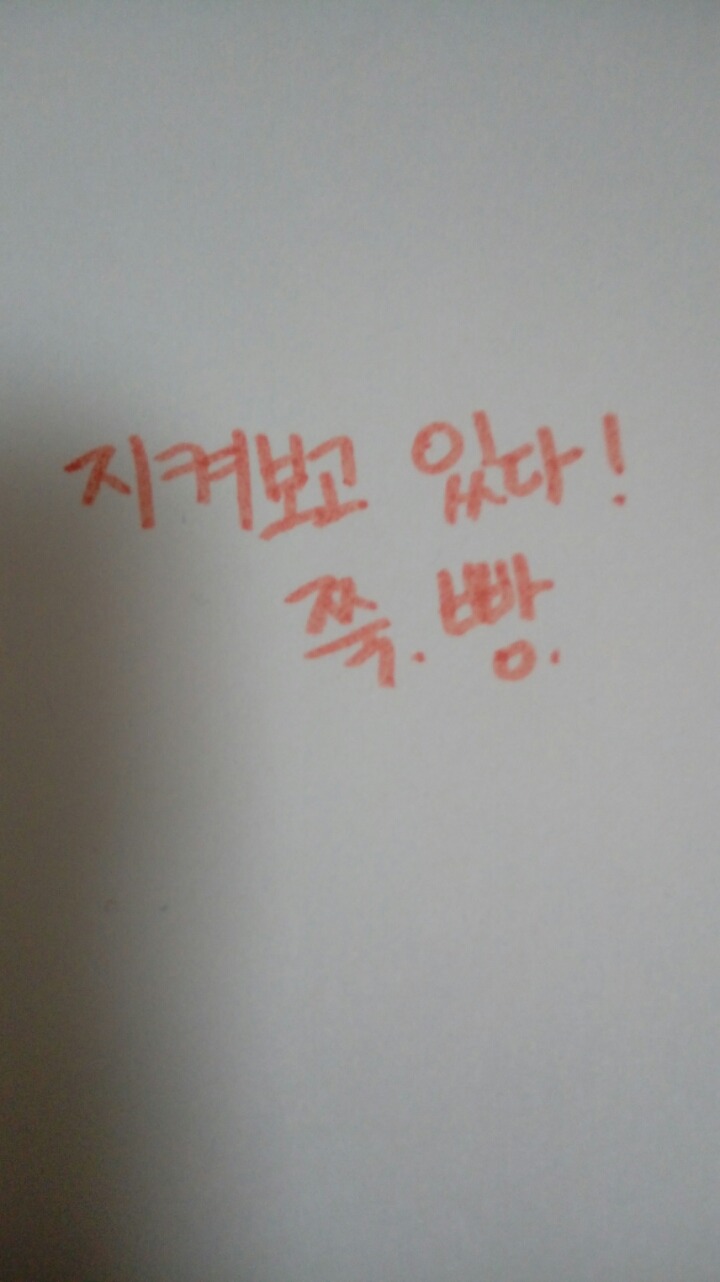 지켜보고 있다!
쯕.빵.